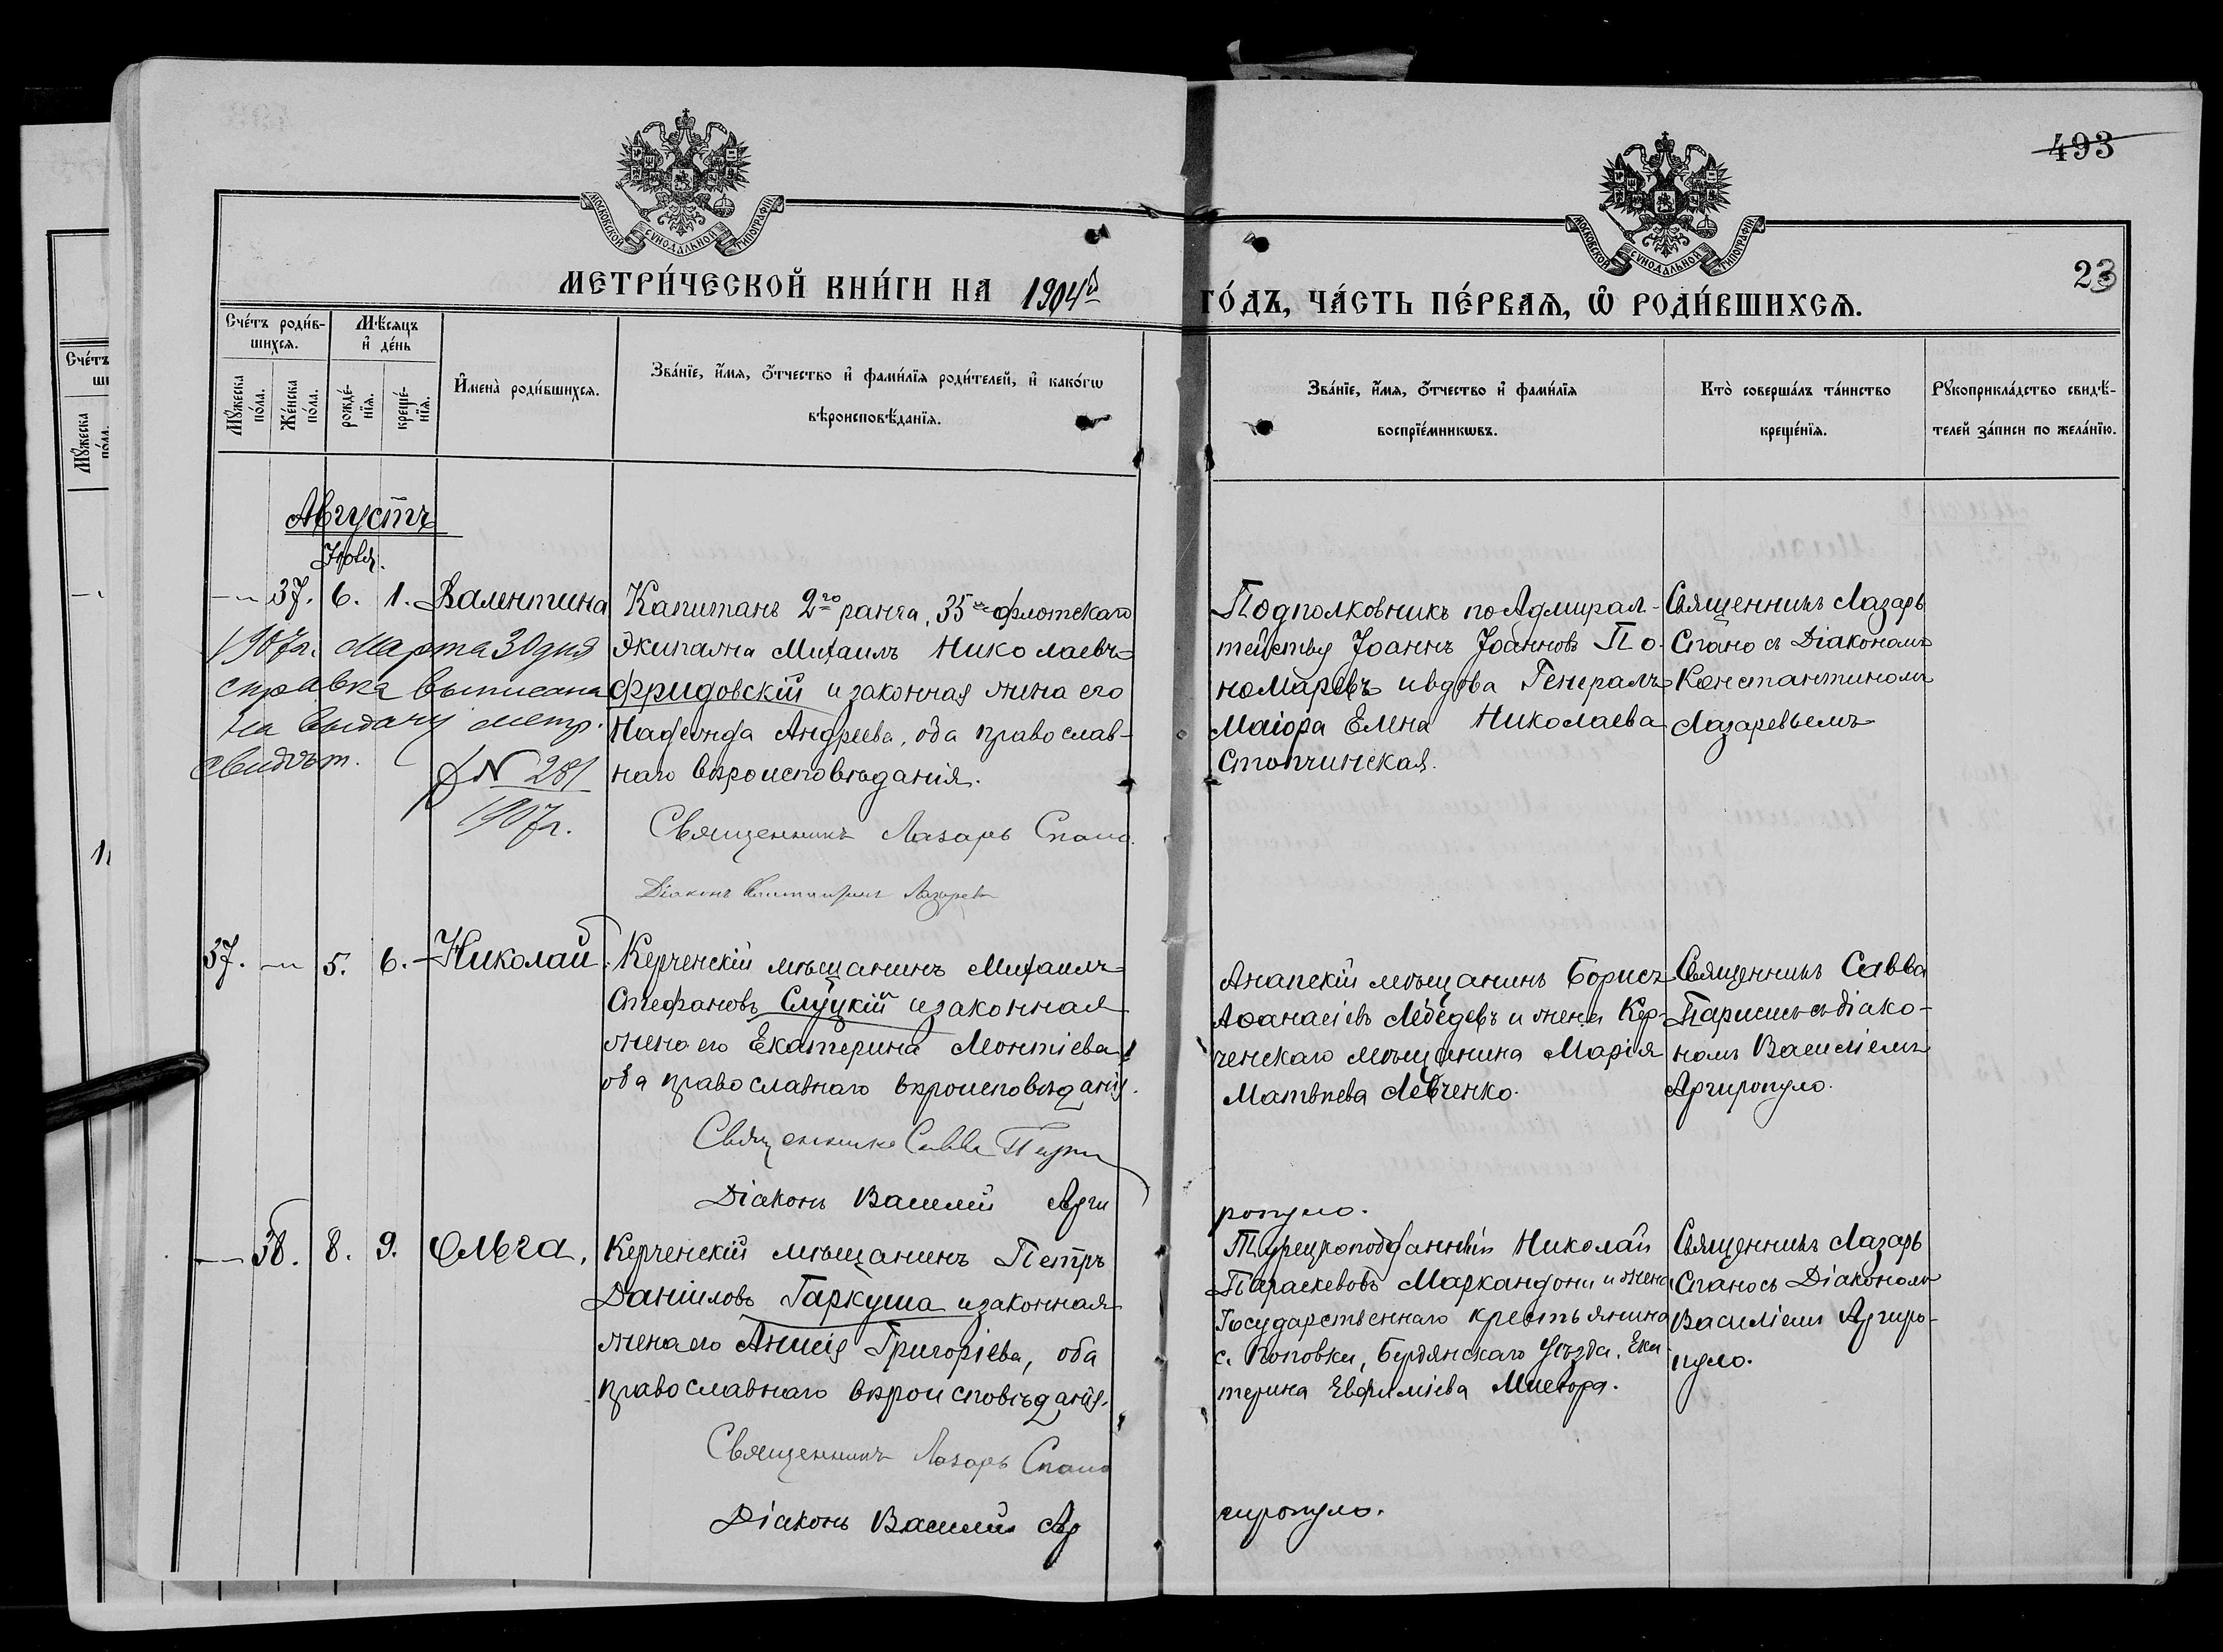 493
МОСКОВСКОЙ СѴНОДАЛЬНОЙ ТИПОГРАФІИ
МОСКОВСКОЙ СѴНОДАЛЬНОЙ ТИПОГРАФІИ
23
МЕТРИ́ЧЕСКОЙ КНИ́ГИ НА 1904й
ГО́ДЪ, ЧА́СТЬ ПЕ́РВАЯ, Ѡ РОДИ́ВШИХСЯ.
Сче́тъ роди́в-
шихся.
Мѣ́сяцъ
и҆ де́нь
Мꙋ́жеска
по́ла.
Же́нска
по́ла.
рожде́-
нїѧ.
креще́-
нїѧ.
И҆мена̀ роди́вшихся.
Зва́нїе, и҆́мя, ѻ҆́тчество и҆ фами́лїя роди́телей, и҆ како́гѡ
вѣроисповѣ́данїя.
Зва́нїе, и҆́мя, ѻ҆́тчество и҆ фами́лїя
воспрїе́мникѡвъ.
Кто̀ соверша́лъ та́инство
креще́нїя.
Рꙋкоприкла́дство свидѣ́-
телей за́писи по жела́нїю.
Августъ
Іюля.
37. 6. 1. Валентина
Капитанъ 2го ранга, 35го флотскаго
экипажа Михаилъ Николаевъ
Фридовскій и законная жена его
Надежда Андреева, оба православ-
наго вѣроисповѣданія.
1907г. Марта 30 дня
справка выписана
на выдачу метр.
свидѣт.
№ 281
1907г.
Священникъ Лазарь Спано.
Діаконъ Константинъ Лазаревъ
Подполковникъ по Адмирал-
тейству Іоаннъ Іоанновъ По-
номаревъ и вдова Генералъ
Маіора Елена Николаева
Стопчинская.
Священникъ Лазарь
Спано съ Діакономъ
Константиномъ
Лазаревымъ
37. 5. 6. Николай.
Керченскій мѣщанинъ Михаилъ
Стефановъ Слуцкій и законная
жена его Екатерина Монтіева,
оба православнаго вѣроисповѣданія.
Священникъ Савва
Діаконъ Василій Арги
ропуло.
Анапскій мѣщанинъ Борисъ
Аѳанасіевъ Лебедевъ и жена Кер-
ченскаго мѣщанина Марія
Матвѣева Левченко.
Священникъ Савва
съ діако-
номъ Василіемъ
Аргиропуло.
38. 8. 9. Ольга,
Керченскій мѣщанинъ Петръ
Даніиловъ Гаркуша и законная
жена его Анисія Григоріева, оба
православнаго вѣроисповѣданія.
Священникъ Лазарь Спано
Діаконъ Василій Ар
гиропуло.
Турецкоподданный Николай
Параскевовъ Маркандони и жена
Государственнаго крестьянина
с. Поповки, Бердянскаго Уѣзда, Ека-
терина Евфиміева
Священникъ Лазарь
Спано съ Діакономъ
Василіемъ Аргиро-
пуло.